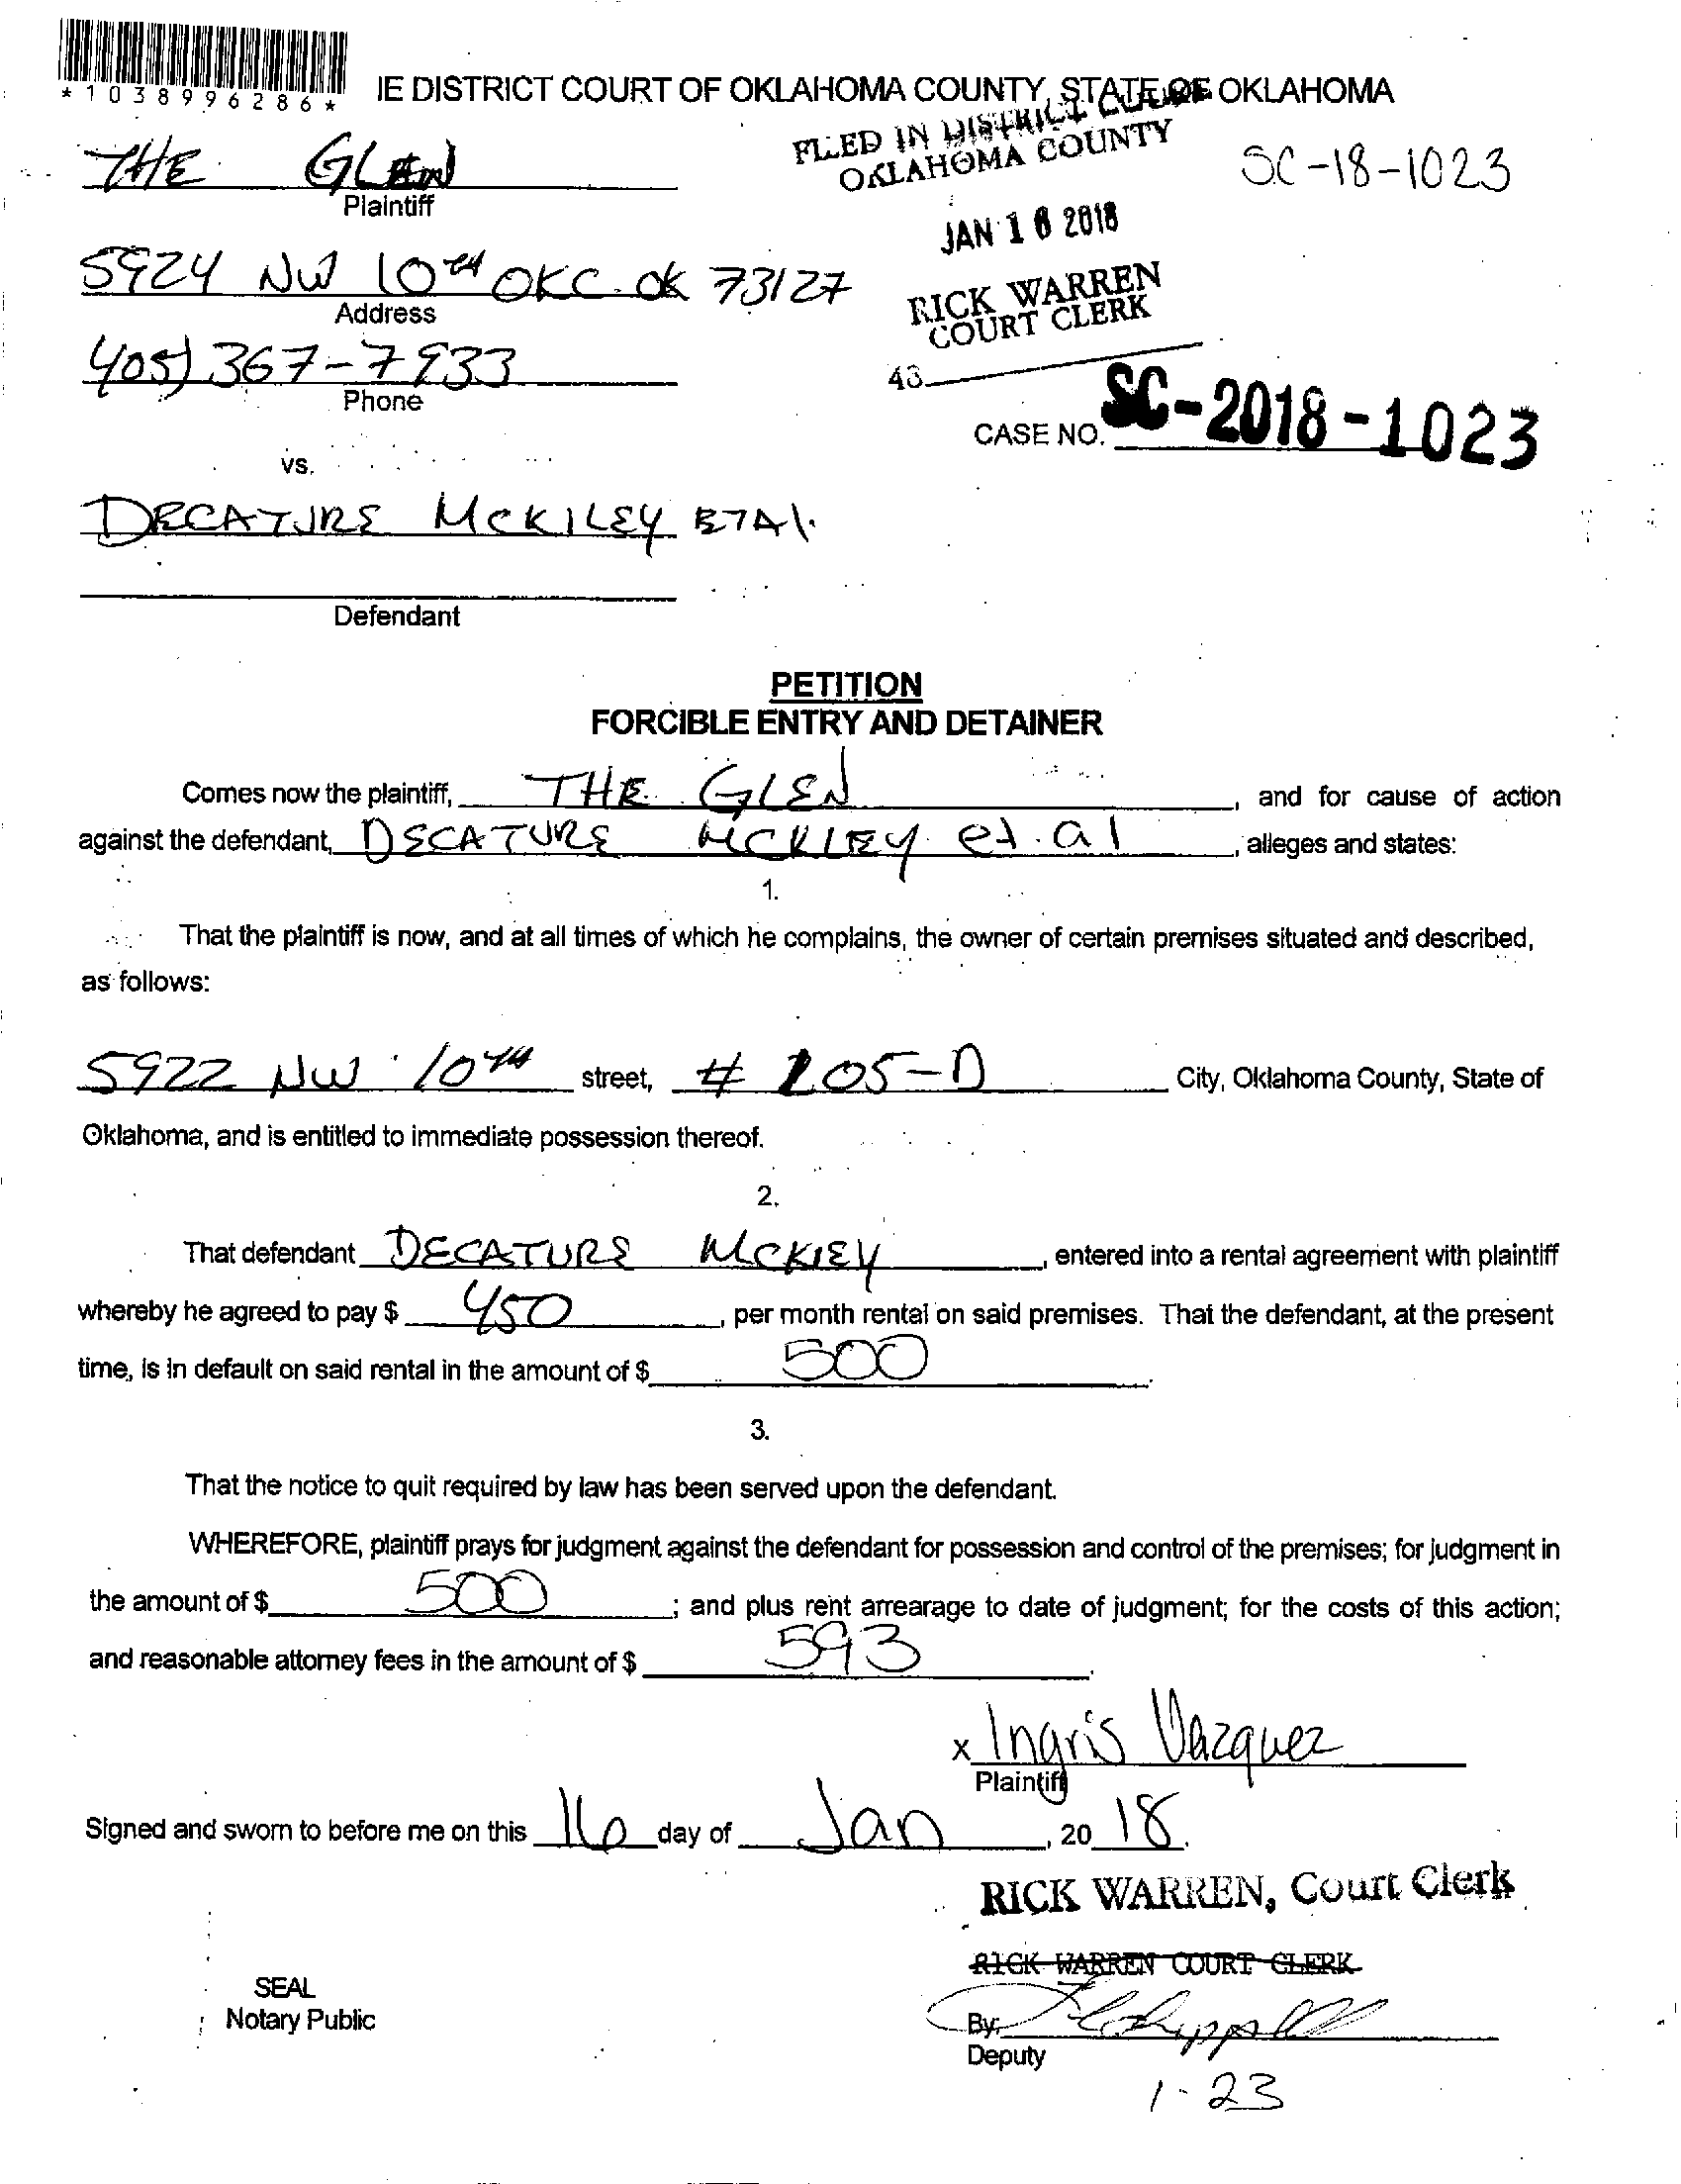 *1038996286*
IE DISTRICT COURT OF OKLAHOMA COUNTY, STATE OF OKLAHOMA
FILED IN DISTRICT COURT
OKLAHOMA COUNTY
THE GLEN
SC-18-1023
Plaintiff
JAN 16 2018
5924 NW 10TH OKC. OK 73127
Address
RICK WARREN
COURT CLERK
405) 367-7933
43
Phone
CASE NO. SC-2018-1023
vs.
DECATURE MCKILEY ETAl.
Defendant
PETITION
FORCIBLE ENTRY AND DETAINER
Comes now the plaintiff, THE GLEN, and for cause of action
against the defendant, DECATURE MCKIEY et.al, alleges and states:
1.
That the plaintiff is now, and at all times of which he complains, the owner of certain premises situated and described,
as follows:
5922 NW 10TH street, # 205-D City, Oklahoma County, State of
Oklahoma, and is entitled to immediate possession thereof.
2.
That defendant DECATURE MCKIEY, entered into a rental agreement with plaintiff
whereby he agreed to pay $ 450, per month rental on said premises. That the defendant, at the present
time, is in default on said rental in the amount of $ 500.
3.
That the notice to quit required by law has been served upon the defendant.
WHEREFORE, plaintiff prays for judgment against the defendant for possession and control of the premises; for judgment in
the amount of $ 500; and plus rent arrearage to date of judgment; for the costs of this action;
and reasonable attorney fees in the amount of $ 593.
x Ingris Vazquez
Plaintiff
Signed and sworn to before me on this 16 day of Jan, 20 18.
RICK WARREN, Court Clerk
RICK WARREN COURT CLERK
SEAL
Notary Public
By:
Deputy
1-23